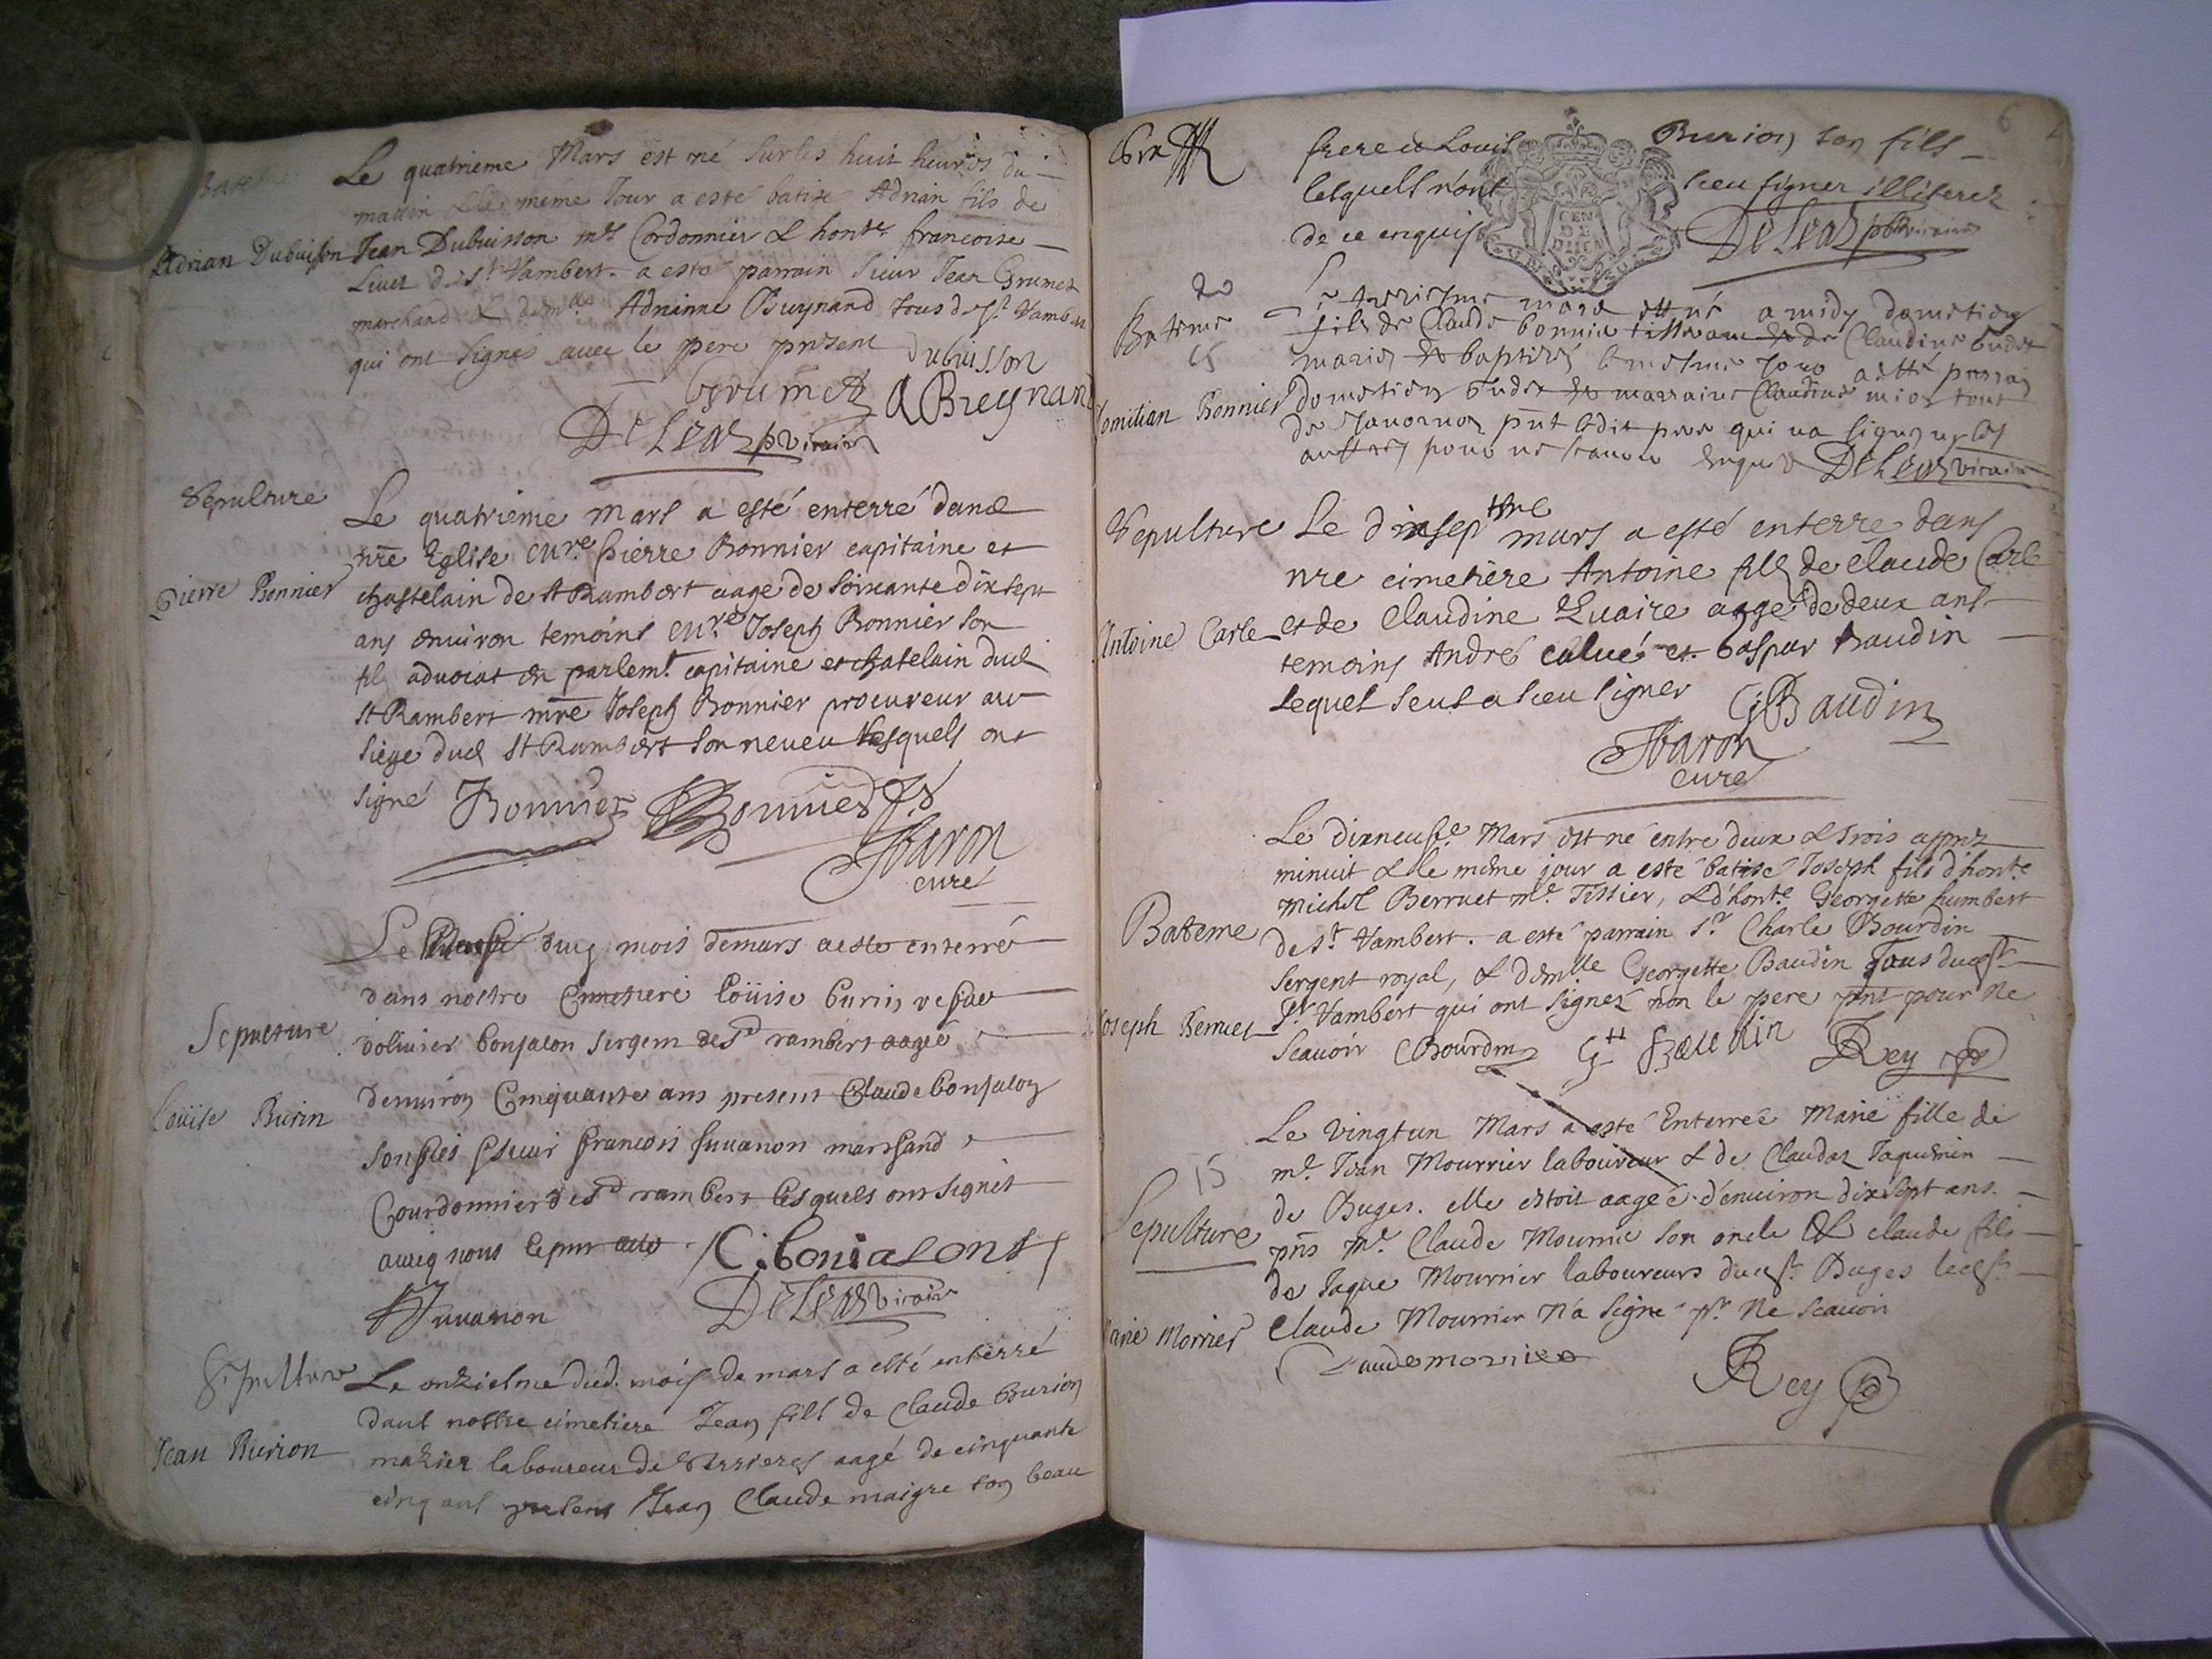 Bateme
Le quatrieme Mars est né sur les huit heures du
matin & le meme Jour a esté batisé Adrian fils de
Adrian Dubuisson
Jean Dubuisson mtre Cordonnier & honte francoise
de st Rambert. a esté parrain sieur Jean Grumet
marchand & demlle Adrianne Buynand tous de st Ramber
qui ont signés avec le pere present Dubuisson
Grumet ABuynand
DeLeaz vicaire
Sepulture
Le quatrieme mars a esté enterré dans
nre Eglise Pierre Bonnier capitaine et
Pierre Bonnier
chastelain de st Rambert aage de soixante dix sept
ans environ temoins Joseph Bonnier son
fils advocat en parlemt. capitaine et chatelain dud
st Rambert mre Joseph Bonnier procureur au
siege dud st Rambert son neveu lesquels ont
signé Bonnier Bonnier
Baron
curé
Le dug mois de mars a esté enterré
dans nostre Cimetiere Loüise Burin vefve
Sepulture
dolivier bonjalon sergent de st rambert aagé
denviron Cinquante ans present Claude bonjalon
Loüise Burin
son fils francois Juvanon marchand
Courdonnier de st rambert lesquels ont signés
avecq nous C. boniaLont
Juvanon DeLeaz vicaire
Sepulture
Le onziesme dud. mois de mars a esté enterré
dans nostre cimetiere Jean fils de Claude Burion
Jean Burion
laboureur de aagé de cinquante
cinq ans present Jean Claude maigre son beau
6
frere & Louis Burion son fils
lesquels n'ont sceu signer illiterez
de ce enquis DeLeaz vicaire
20
Bateme
15
Le mars est né a midy domitien
fils de Claude bonnier & de Claudine budet
mariez & baptisé le mesme Jour a esté parrain
Domitian Bonnier
domitien budet & marraine Claudine tous
de pnt ledit pere qui na signé ny les
autres pour ne scavoir enquis DeLeaz vicaire
Sepulture
Le dixsepthme mars a esté enterré dans
nre cimetiere Antoine fils de Claude Carle
Antoine Carle
et de Claudine aagé de deux ans
temoins André et Gaspar Baudin
lequel seul a sceu signer GBaudin
Baron
curé
Le dixneufe. Mars est né entre deux & trois apprez
minuit & le même jour a esté batisé Joseph fils d'honte
Michel Berruet me. Tissier, & d'honte Georgette humbert
Bateme
de st Rambert. a esté parrain sr Charle Bourdin
sergent royal, & demlle Georgette Baudin Tous dud
Joseph Berruet
st Rambert qui ont signez non le pere pnt pour ne
scavoir CBourdin Gte Baudin Rey
Le vingtun Mars a esté Enterreé Marie fille de
me Jean Mourrier laboureur & de Claudaz Japuenin
15
de Buges. elle estoit aageé d'environ dix sept ans.
Sepulture
pns me. Claude Mourrier son oncle & claude fils
de Jaque Mourrier laboureurs dud Buges
Marie Morrier
Claude Mourrier n'a signé pr. ne scavoir
Claude morrier
Rey